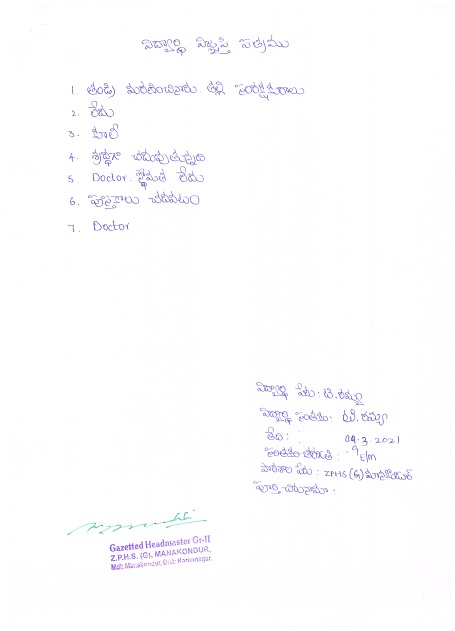 విద్యార్థి విజ్ఞప్తి పత్రము
1. తండ్రి మరణించినారు. తల్లి సంరక్షకురాలు
2. లేదు
3. కూలీ
4. శ్రద్ధగా చదువుతున్నది
5 Doctor. స్థోమత లేదు
6. పుస్తకాలు చదవటం
7. Doctor
విద్యార్థి పేరు: టి.రమ్య
విద్యార్థి సంతకం: టి.రమ్య
తేది: 04-3-2021
తరగతి: 9 E/M
పాఠశాల పేరు: ZPHS (G) మానకొండూర్
పూర్తి చిరునామా:
Gazetted Headmaster Gr-II
Z.P.H.S. (G), MANAKONDUR,
Mdl: Manakondur, Dist: Karimnagar.